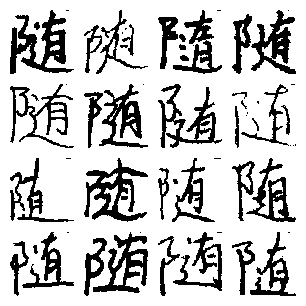 随随随随
随随随随
随随随随
随随随随